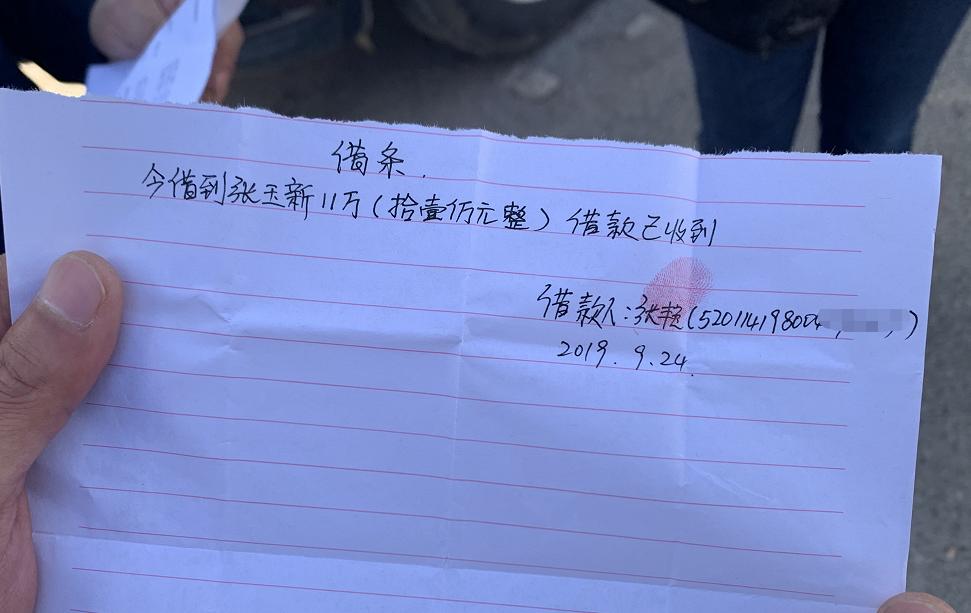 借条.
今借到张玉新11万(拾壹仟元整)借款已收到
借款人:张艳(520114198004
2019.9.24.